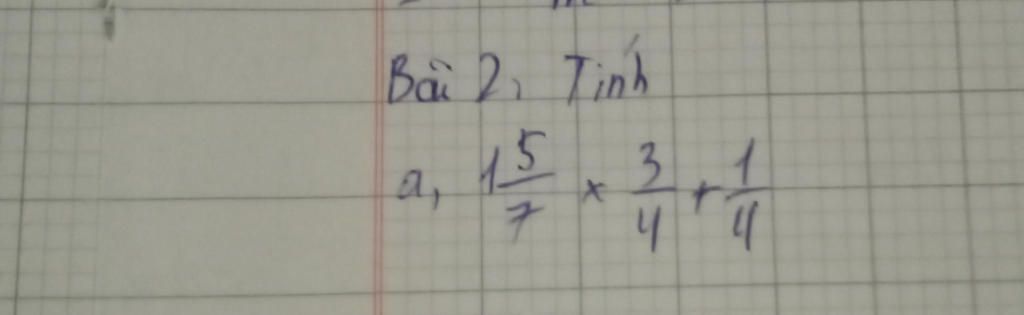 Bài 2, Tính
a, 1 5/7 × 3/4 + 1/4